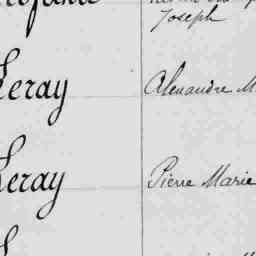 Joseph
Leray
Alexandre M
Leray
Pierre Marie